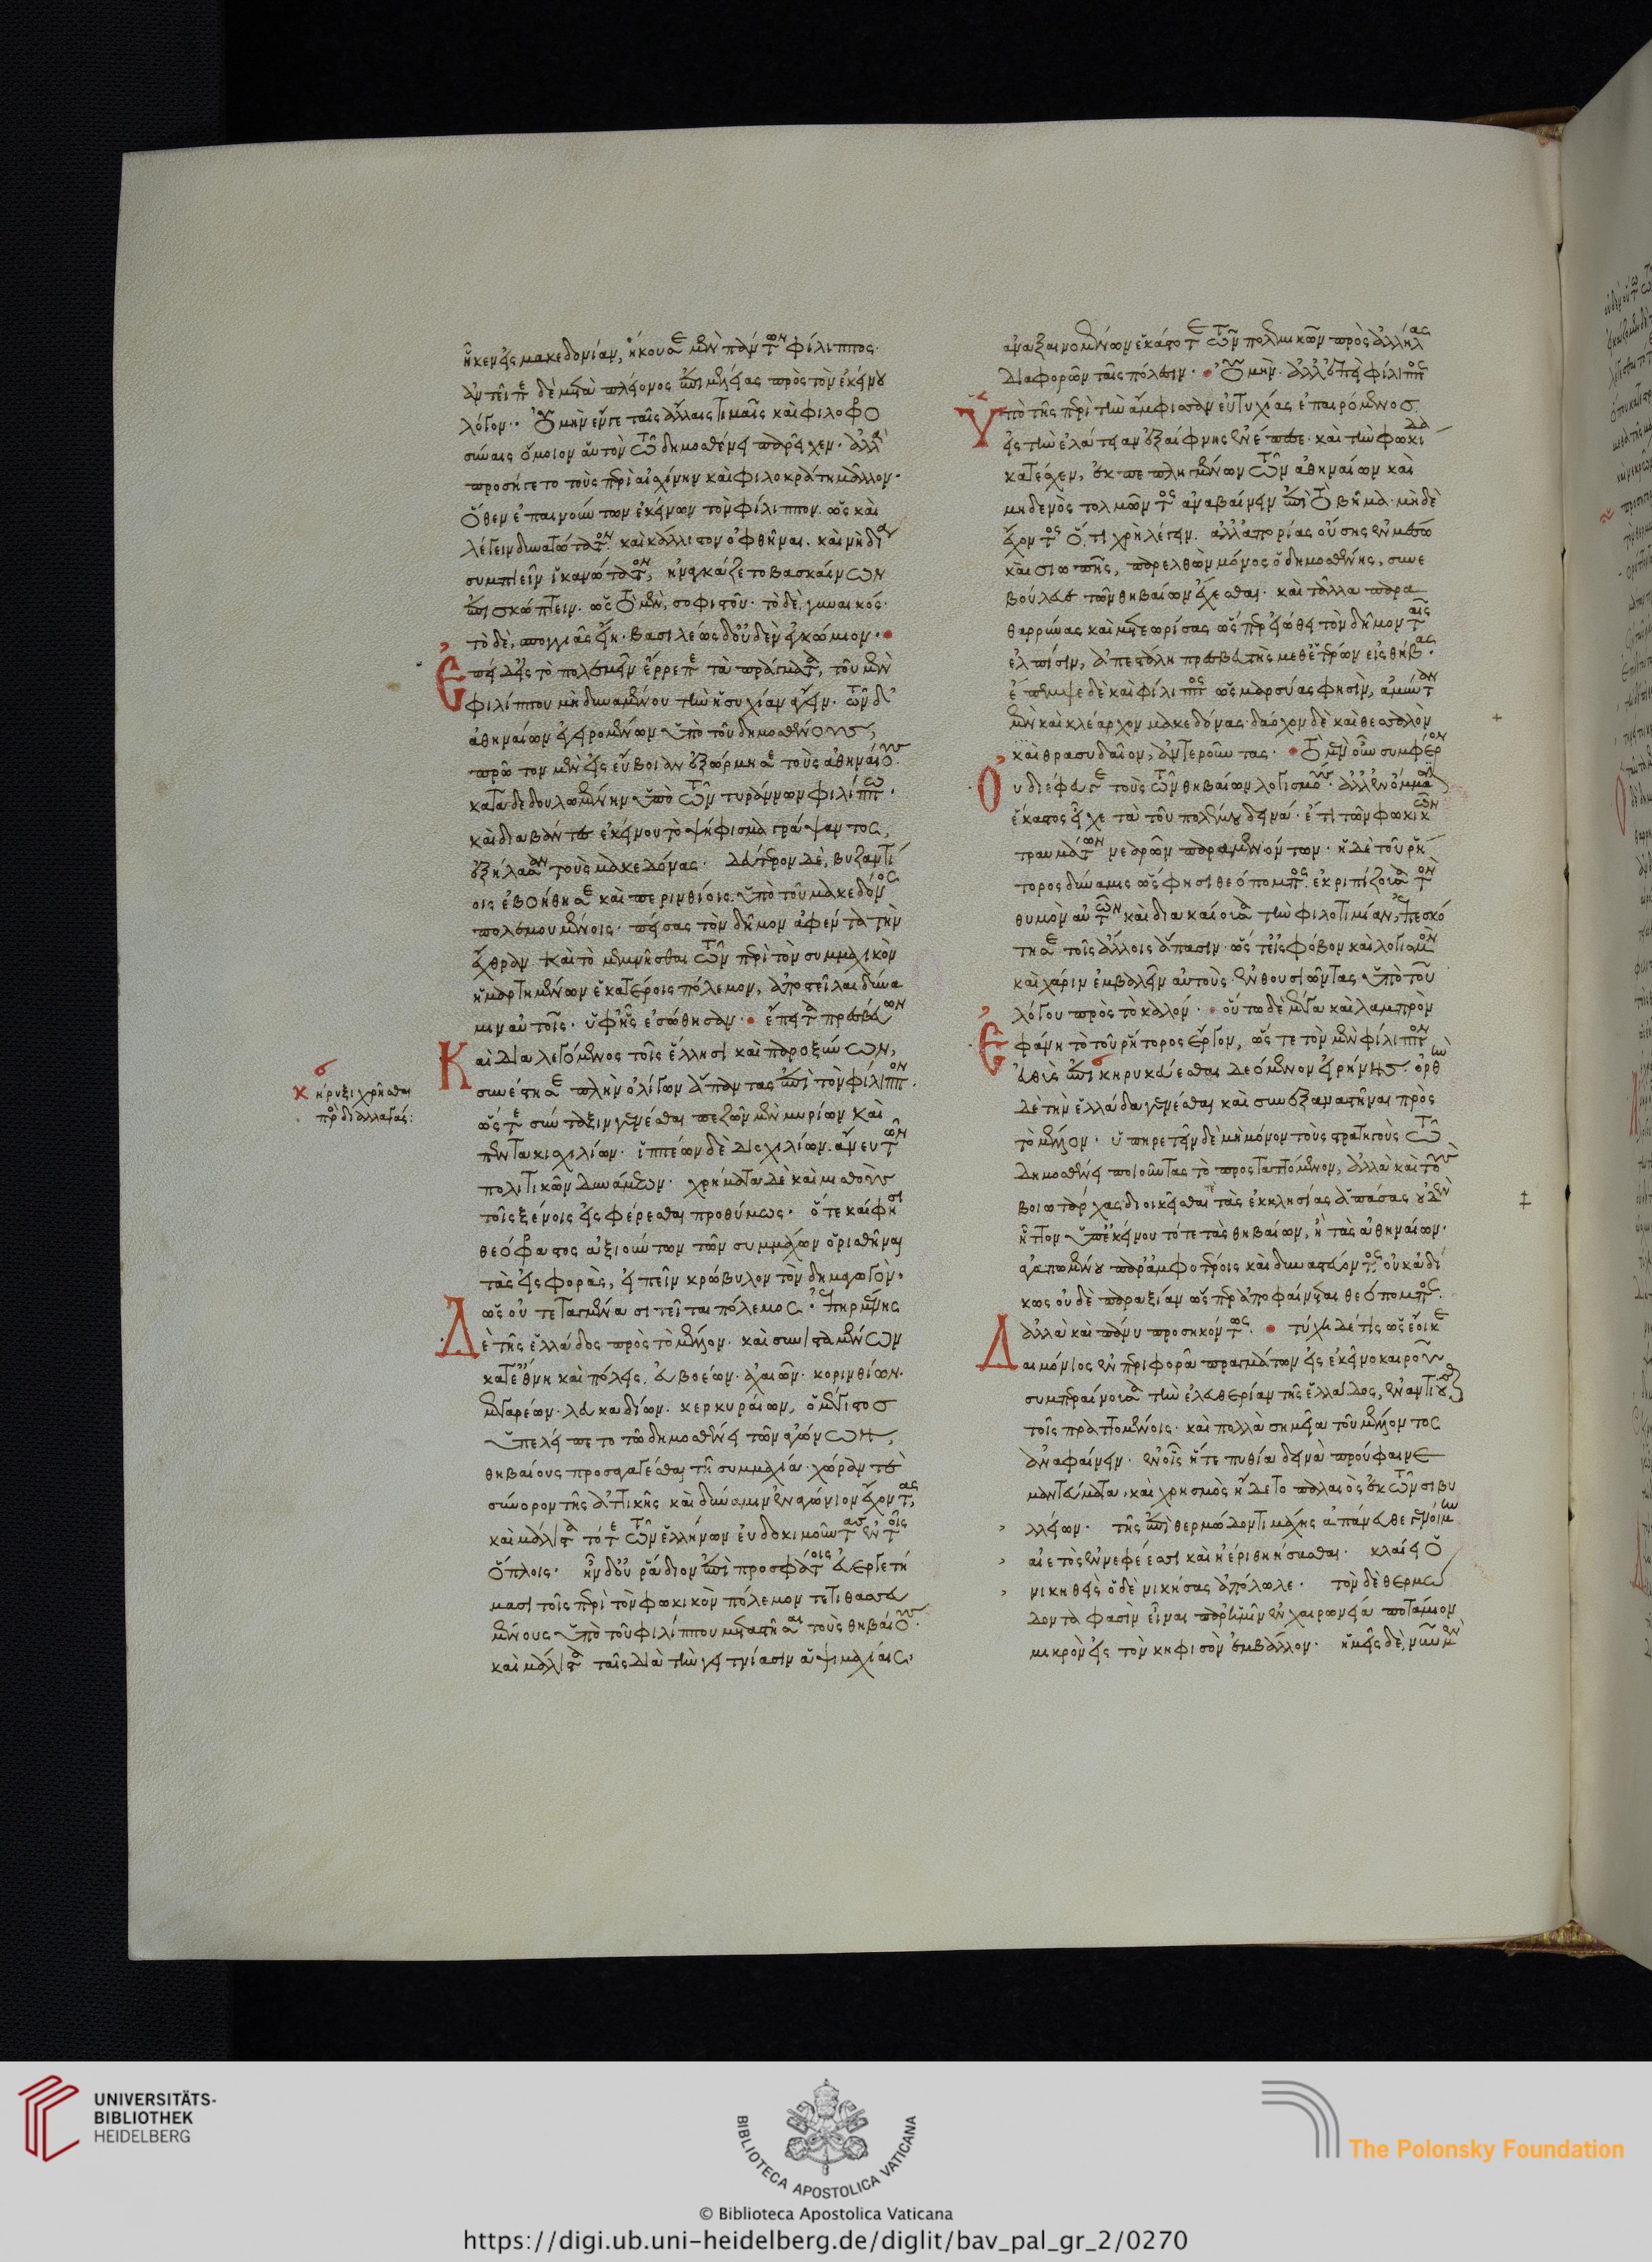 ἧκεν εἰς μακεδονίαν, ἤκουσε μὲν πάντων φίλιππος·
ἀντεῖπε δὲ μετὰ πλείονος ἐπιμελείας πρὸς τὸν ἐκείνου
λόγον· οὐ μὴν ἔν γε ταῖς ἄλλαις τιμαῖς καὶ φιλοφρο
σύναις ὅμοιον αὑτὸν τῶ δημοσθένει παρεῖχεν· ἀλλὰ
προσήγετο τοὺς περὶ αἰσχίνην καὶ φιλοκράτη μᾶλλον·
ὅθεν ἐπαινούντων ἐκείνων τὸν φίλιππον ὡς καὶ
λέγειν δυνατώτατον· καὶ κάλλιστον ὀφθῆναι· καὶ νὴ δία
συμπιεῖν ἱκανώτατον, ἠναγκάζετο βασκαίνων
ἐπισκώπτειν· ὡς τὸ μὲν, σοφιστοῦ· τὸ δὲ, γυναικός·
τὸ δὲ, σπογγιᾶς εἴη· βασιλέως δ' οὐδὲν ἐγκώμιον·
Ἐπεὶ δ' εἰς τὸ πολεμεῖν ἔρρεπε τὰ πράγματα, τοῦ μὲν
φιλίππου μὴ δυναμένου τὴν ἡσυχίαν ἄγειν· τῶν δ'
ἀθηναίων ἐγειρομένων ὑπὸ τοῦ δημοσθένους,
πρῶτον μὲν εἰς εὔβοιαν ἐξώρμησε τοὺς ἀθηναίους·
καταδεδουλωμένην ὑπὸ τῶν τυράννων φιλίππω·
καὶ διαβάντες ἐκείνου τὸ ψήφισμα γράψαντος,
ἐξήλασαν τοὺς μακεδόνας· δεύτερον δὲ, βυζαντί
οις ἐβοήθησε καὶ περινθίοις ὑπὸ τοῦ μακεδόνος
πολεμουμένοις· πείσας τὸν δῆμον ἀφέντα τὴν
ἔχθραν καὶ τὸ μεμνῆσθαι τῶν περὶ τὸν συμμαχικὸν
ἡμαρτημένων ἑκατέροις πόλεμον, ἀποστεῖλαι δύνα
μιν αὐτοῖς· ὑφ' ἧς ἐσώθησαν· ἔπειτα πρεσβεύων
Καὶ διαλεγόμενος τοῖς ἕλλησι καὶ παροξύνων,
συνέστησε πλὴν ὀλίγων ἅπαντας ἐπὶ τὸν φίλιππον·
ὥστε σύνταξιν γενέσθαι πεζῶν μὲν μυρίων καὶ
πεντακισχιλίων· ἱππέων δὲ δισχιλίων ἄνευ τῶν
πολιτικῶν δυνάμεων· χρήματα δὲ καὶ μισθοὺς
τοῖς ξένοις εἰσφέρεσθαι προθύμως· ὅτε καί φησι
θεόφραστος ἀξιούντων τῶν συμμάχων ὁρισθῆναι
τὰς εἰσφορὰς, εἰπεῖν κρώβυλον τὸν δημαγωγὸν·
ὡς οὐ τεταγμένα σιτεῖται πόλεμος· ἐπηρμένης
Δὲ τῆς ἑλλάδος πρὸς τὸ μέλλον· καὶ συνισταμένων
κατ' ἔθνη καὶ πόλεις, εὐβοέων· ἀχαιῶν· κορινθίων·
μεγαρέων· λευκαδίων· κερκυραίων, ὁ μέγιστος
ὑπελείπετο τῶ δημοσθένει τῶν ἀγώνων,
θηβαίους προσαγαγέσθαι τῆ συμμαχία· χώραν τε
σύνορον τῆς ἀττικῆς καὶ δύναμιν ἐναγώνιον ἔχοντας,
καὶ μάλιστα τότε τῶν ἑλλήνων εὐδοκιμοῦντας ἐν τοῖς
ὅπλοις· ἦν δ' οὐ ῥάδιον ἐπὶ προσφάτοις εὐεργετή
μασι τοῖς περὶ τὸν φωκικὸν πόλεμον τετιθασευ
μένους ὑπὸ τοῦ φιλίππου μεταστῆσαι τοὺς θηβαίους·
καὶ μάλιστα ταῖς διὰ τὴν γειτνίασιν ἁψιμαχίαις·
κηρυξι χρῆσθαι
πρὸ διαλλαγάς:
ἀναξαινομένων ἑκάστοτε τῶν πολεμικῶν πρὸς ἀλλήλας
διαφορῶν ταῖς πόλεσιν· Οὐ μὴν ἀλλ' ἐπεὶ φίλιππος
Ὑπὸ τῆς περὶ τὴν ἄμφισσαν εὐτυχίας ἐπαιρόμενος
εἰς τὴν ἐλάτειαν ἐξαίφνης ἐνέπεσε· καὶ τὴν φωκίδα
κατέσχεν, ἐκπεπληγμένων τῶν ἀθηναίων καὶ
μηδενὸς τολμῶντος ἀναβαίνειν ἐπὶ τὸ βῆμα· μηδὲ
ἔχοντος ὅ,τι χρὴ λέγειν· ἀλλ' ἀπορίας οὔσης ἐν μέσω
καὶ σιωπῆς, παρελθὼν μόνος ὁ δημοσθένης, συνε
βούλευε τῶν θηβαίων ἔχεσθαι· καὶ τἄλλα παρα
θαρρύνας καὶ μετεωρίσας ὥσπερ εἰώθει τὸν δῆμον ταῖς
ἐλπίσιν, ἀπεστάλη πρεσβευτὴς μεθ' ἑτέρων εἰς θήβας·
ἔπεμψε δὲ καὶ φίλιππος ὡς μαρσύας φησὶν, ἀμύνταν
μὲν καὶ κλέαρχον μακεδόνας· δάοχον δὲ καὶ θεσσαλὸν
καὶ θρασυδαῖον, ἀντεροῦντας· Τὸ μὲν οὖν συμφέρον
Οὐ διέφευγε τοὺς τῶν θηβαίων λογισμούς· ἀλλ' ἐν ὄμμασιν
ἕκαστος εἶχε τὰ τοῦ πολέμου δεινά· ἔτι τῶν φωκικῶν
τραυμάτων νεαρῶν παραμενόντων· ἡ δὲ τοῦ ῥή
τορος δύναμις ὥς φησι θεόπομπος, ἐκριπίζουσα τὸν
θυμὸν αὐτῶν καὶ διακαίουσα τὴν φιλοτιμίαν, ἐπεσκό
τησε τοῖς ἄλλοις ἅπασιν· ὥστε εἰς φόβον καὶ λογισμὸν
καὶ χάριν ἐμβαλεῖν αὐτοὺς· ἐνθουσιῶντας ὑπὸ τοῦ
λόγου πρὸς τὸ καλόν· οὕτω δὲ μέγα καὶ λαμπρὸν
Ἐφάνη τὸ τοῦ ῥήτορος ἔργον, ὥστε τὸν μὲν φίλιππον
εὐθὺς ἐπικηρυκεύεσθαι δεόμενον εἰρήνης· ὀρθὴν
δὲ τὴν ἑλλάδα γενέσθαι καὶ συνεξαναστῆναι πρὸς
τὸ μέλλον· ὑπηρετεῖν δὲ μὴ μόνον τοὺς στρατηγοὺς τῶ
δημοσθένει ποιοῦντας τὸ προσταττόμενον, ἀλλὰ καὶ τοὺς
βοιωτάρχας· διοικεῖσθαί τε τὰς ἐκκλησίας ἁπάσας οὐδὲν
ἧττον ὑπ' ἐκείνου τότε τὰς θηβαίων, ἢ τὰς ἀθηναίων·
ἀγαπωμένου παρ' ἀμφοτέροις καὶ δυναστεύοντος οὐκ ἀδί
κως οὐδὲ παρ' ἀξίαν ὥσπερ ἀποφαίνεται θεόπομπος·
ἀλλὰ καὶ πάνυ προσηκόντως· τύχη δέ τις ὡς ἔοικε
Δαιμόνιος ἐν περιφορᾶ πραγμάτων εἰς ἐκεῖνο καιροῦ
συμπεραίνουσα τὴν ἐλευθερίαν τῆς ἑλλάδος, ἐναντιοῦσθαι
τοῖς πραττομένοις· καὶ πολλὰ σημεῖα τοῦ μέλλοντος
ἀναφαίνειν· ἐν οἷς ἥ τε πυθία δεινὰ προύφαινε
μαντεύματα· καὶ χρησμὸς ἤδετο παλαιὸς ἐκ τῶν σιβυ
λλείων· τῆς ἐπὶ θερμώδοντι μάχης ἀπάνευθε γενοίμην
αἰετὸς ἐν νεφέεσσι καὶ ἠέρι θηήσασθαι· κλαίει ὁ
νικηθεὶς ὁ δὲ νικήσας ἀπόλωλε· τὸν δὲ θερμώ
δοντα φασὶν εἶναι παρ' ἡμῖν ἐν χαιρωνεία ποτάμιον
μικρὸν εἰς τὸν κηφισὸν ἐμβάλλον· ἡμεῖς δὲ, νῦν μὲν
UNIVERSITÄTS-
BIBLIOTHEK
HEIDELBERG
BIBLIOTECA APOSTOLICA VATICANA
© Biblioteca Apostolica Vaticana
The Polonsky Foundation
https://digi.ub.uni-heidelberg.de/diglit/bav_pal_gr_2/0270